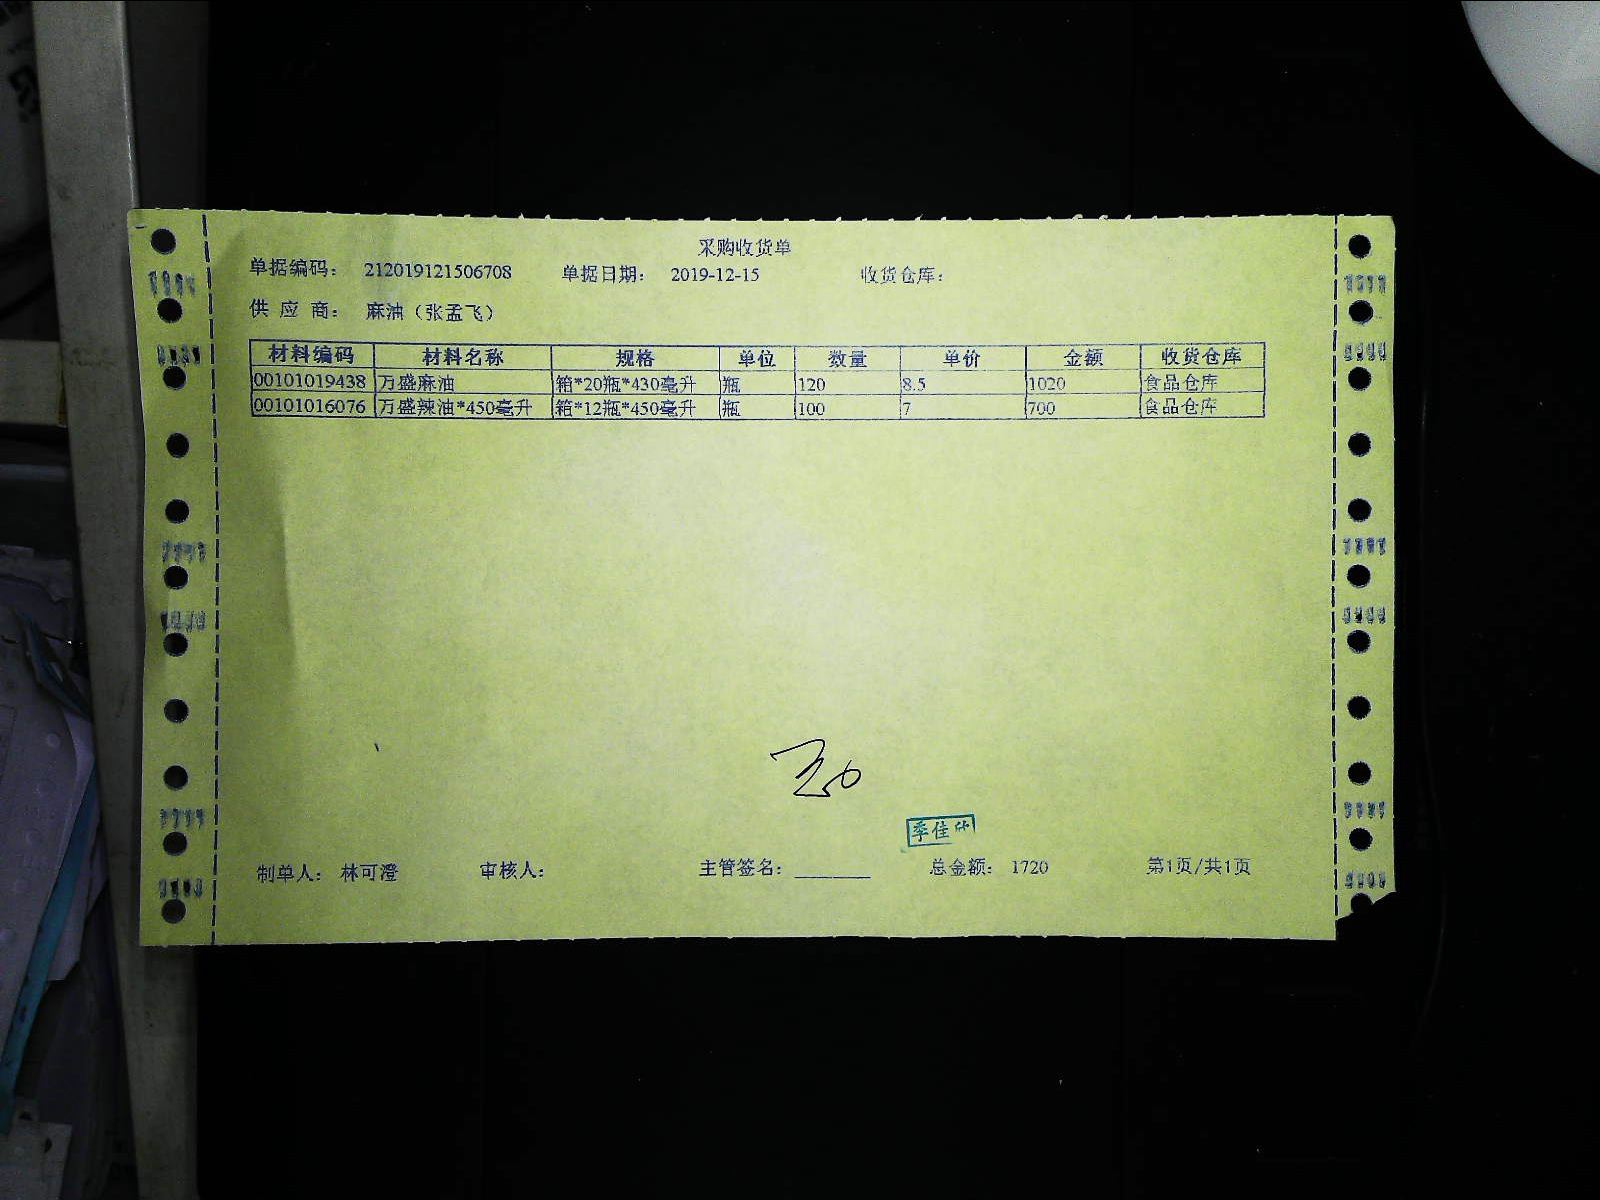 采购收货单
单据编码： 212019121506708 单据日期： 2019-12-15 收货仓库：
供 应 商： 麻油（张孟飞）
材料编码 材料名称 规格 单位 数量 单价 金额 收货仓库
00101019438 万盛麻油 箱*20瓶*430毫升 瓶 120 8.5 1020 食品仓库
00101016076 万盛辣油*450毫升 箱*12瓶*450毫升 瓶 100 7 700 食品仓库
季佳欣
制单人： 林可澄 审核人： 主管签名： ________ 总金额： 1720 第1页/共1页